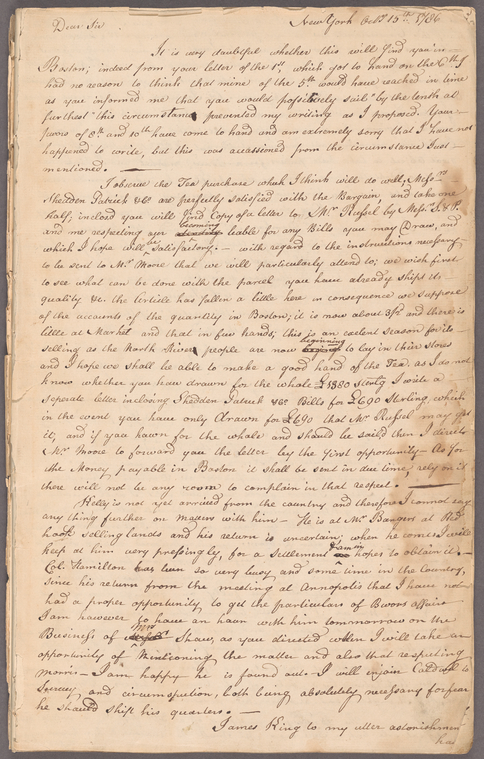 Dear Sir
New York Octr 15th 1786
It is very doubtful whether this will find you in
Boston; indeed from your letter of the 1st which got to hand on the 6th I
had no reason to think that mine of the 5th would have reached in time
as you informed me that you would possitively sail "by the tenth at
farthest" this circumstance prevented my writing as I proposed. Your
favors of 8th and 10th have come to hand and am extremely sorry that I have not
happened to write, but this was occassioned from the circumstance Just
mentioned. —
I observe the Tea purchase which I think will do well; Messrs
Shedden Patrick & Co are perfectly satisfied with the Bargain and take one
half; inclosed you will find Copy of a letter to Mr Russel by Messrs S. & P.
and me respecting your becoming liable for any Bills you may Draw, and
which I hope will be Satisfactory. — with regard to the instructions necessary
to be sent to Mr Moore that we will particularly attend to; we wish first
to see what can be done with the parcel you have already ship'd its
quality &c. the Article has fallen a little here in consequence we suppose
of the accounts of the quantity in Boston; it is now about 3/ and there is
little at Market and that in few hands; this is an exelent season for its
selling as the North River people are now beginning to lay in their stores
and I hope we shall be able to make a good hand of the Tea. as I do not
know whether you have drawn for the whole £1380 sterlg I write a
seperate letter inclosing Shedden Patrick & Co. Bills for £690 Sterling which
in the event you have only drawn for £690 that Mr Russel may get
it; and if you hawn for the whole and should be saild then I direct
Mr Moore to forward you the letter by the first opportunity — As for
the Money payable in Boston it shall be sent in due time, rely on it
there will not be any room to complain in that respect. —
Kelly is not yet arrived from the country and therefore I cannot say
any thing further on matters with him — He is at Mr Bangers at Red
hook selling lands and his return is uncertain; when he comes I will
keep at him very pressingly, for a settlement & am in hopes to obtain it. —
Col: Hamilton has been so very busy and some time in the Country,
since his return from the meeting at Annopolis that I have not
had a proper opportunity to get the particulars of affairs
I am however to have an haur with him tommorrow on the
Business of Mrs Shaw, as you directed when I will take an
opportunity of Mentioning the matter and also that respecting
Morris — I am happy he is found out — I will injoin Caldwell to
Secrecy and circumspection, both being absolutely necessary for fear
he should shift his quarters. —
James King to my utter astonishment
has